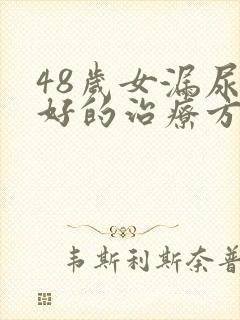 48歲女漏尿
好的治療方
韦斯利斯奈普